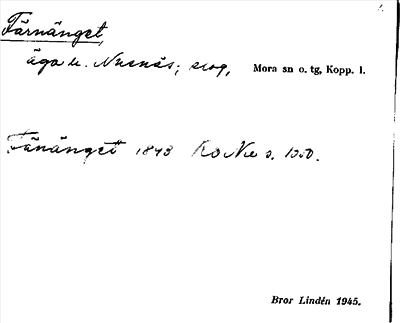 Färnänget,
äga u. Nusnäs; skog, Mora sn o. tg, Kopp. l.
Fänänget 1843 Ko s. 1050.
Bror Lindén 1945.